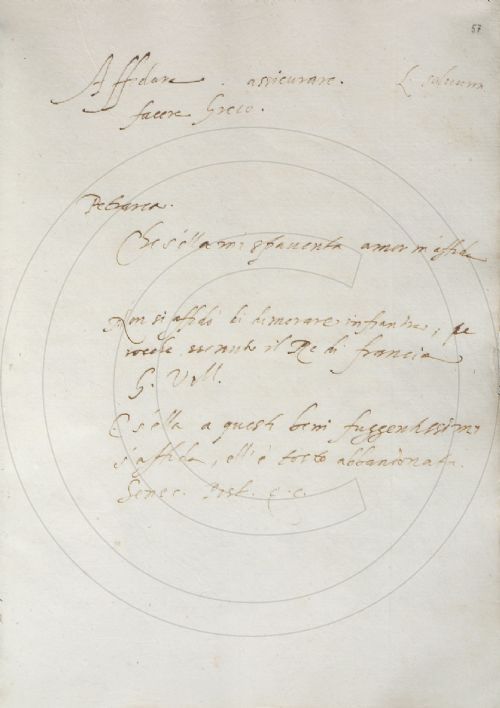 57
Affidare . assicurare. L saluum
facere Greco.
Petrarca.
Che s'ella mi spauenta amor m'affida
Non si affidò di dimorare in fiandra, pe
roche uenuto il Re di francia
G. Vill.
E s'ella a questi beni fuggentissimi
s'affida, ell'è tosto abbandonata.
Senec. Pist.